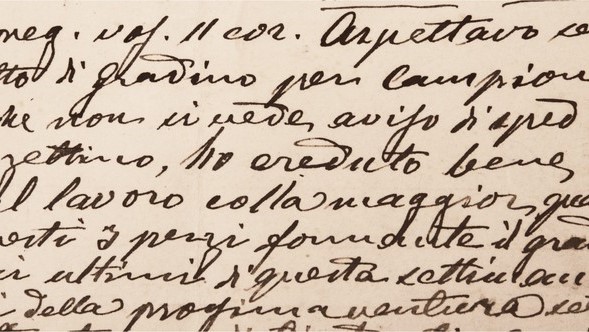 neg. vos. 11 cor. Aspettavo se
tto di gradino per campion
he non si vede avviso di sped
zettino, ho creduto bene
l lavoro colla maggior que
esti 3 pezzi formante il grad
ir ultimi di questa settiman
i della prossima ventura se